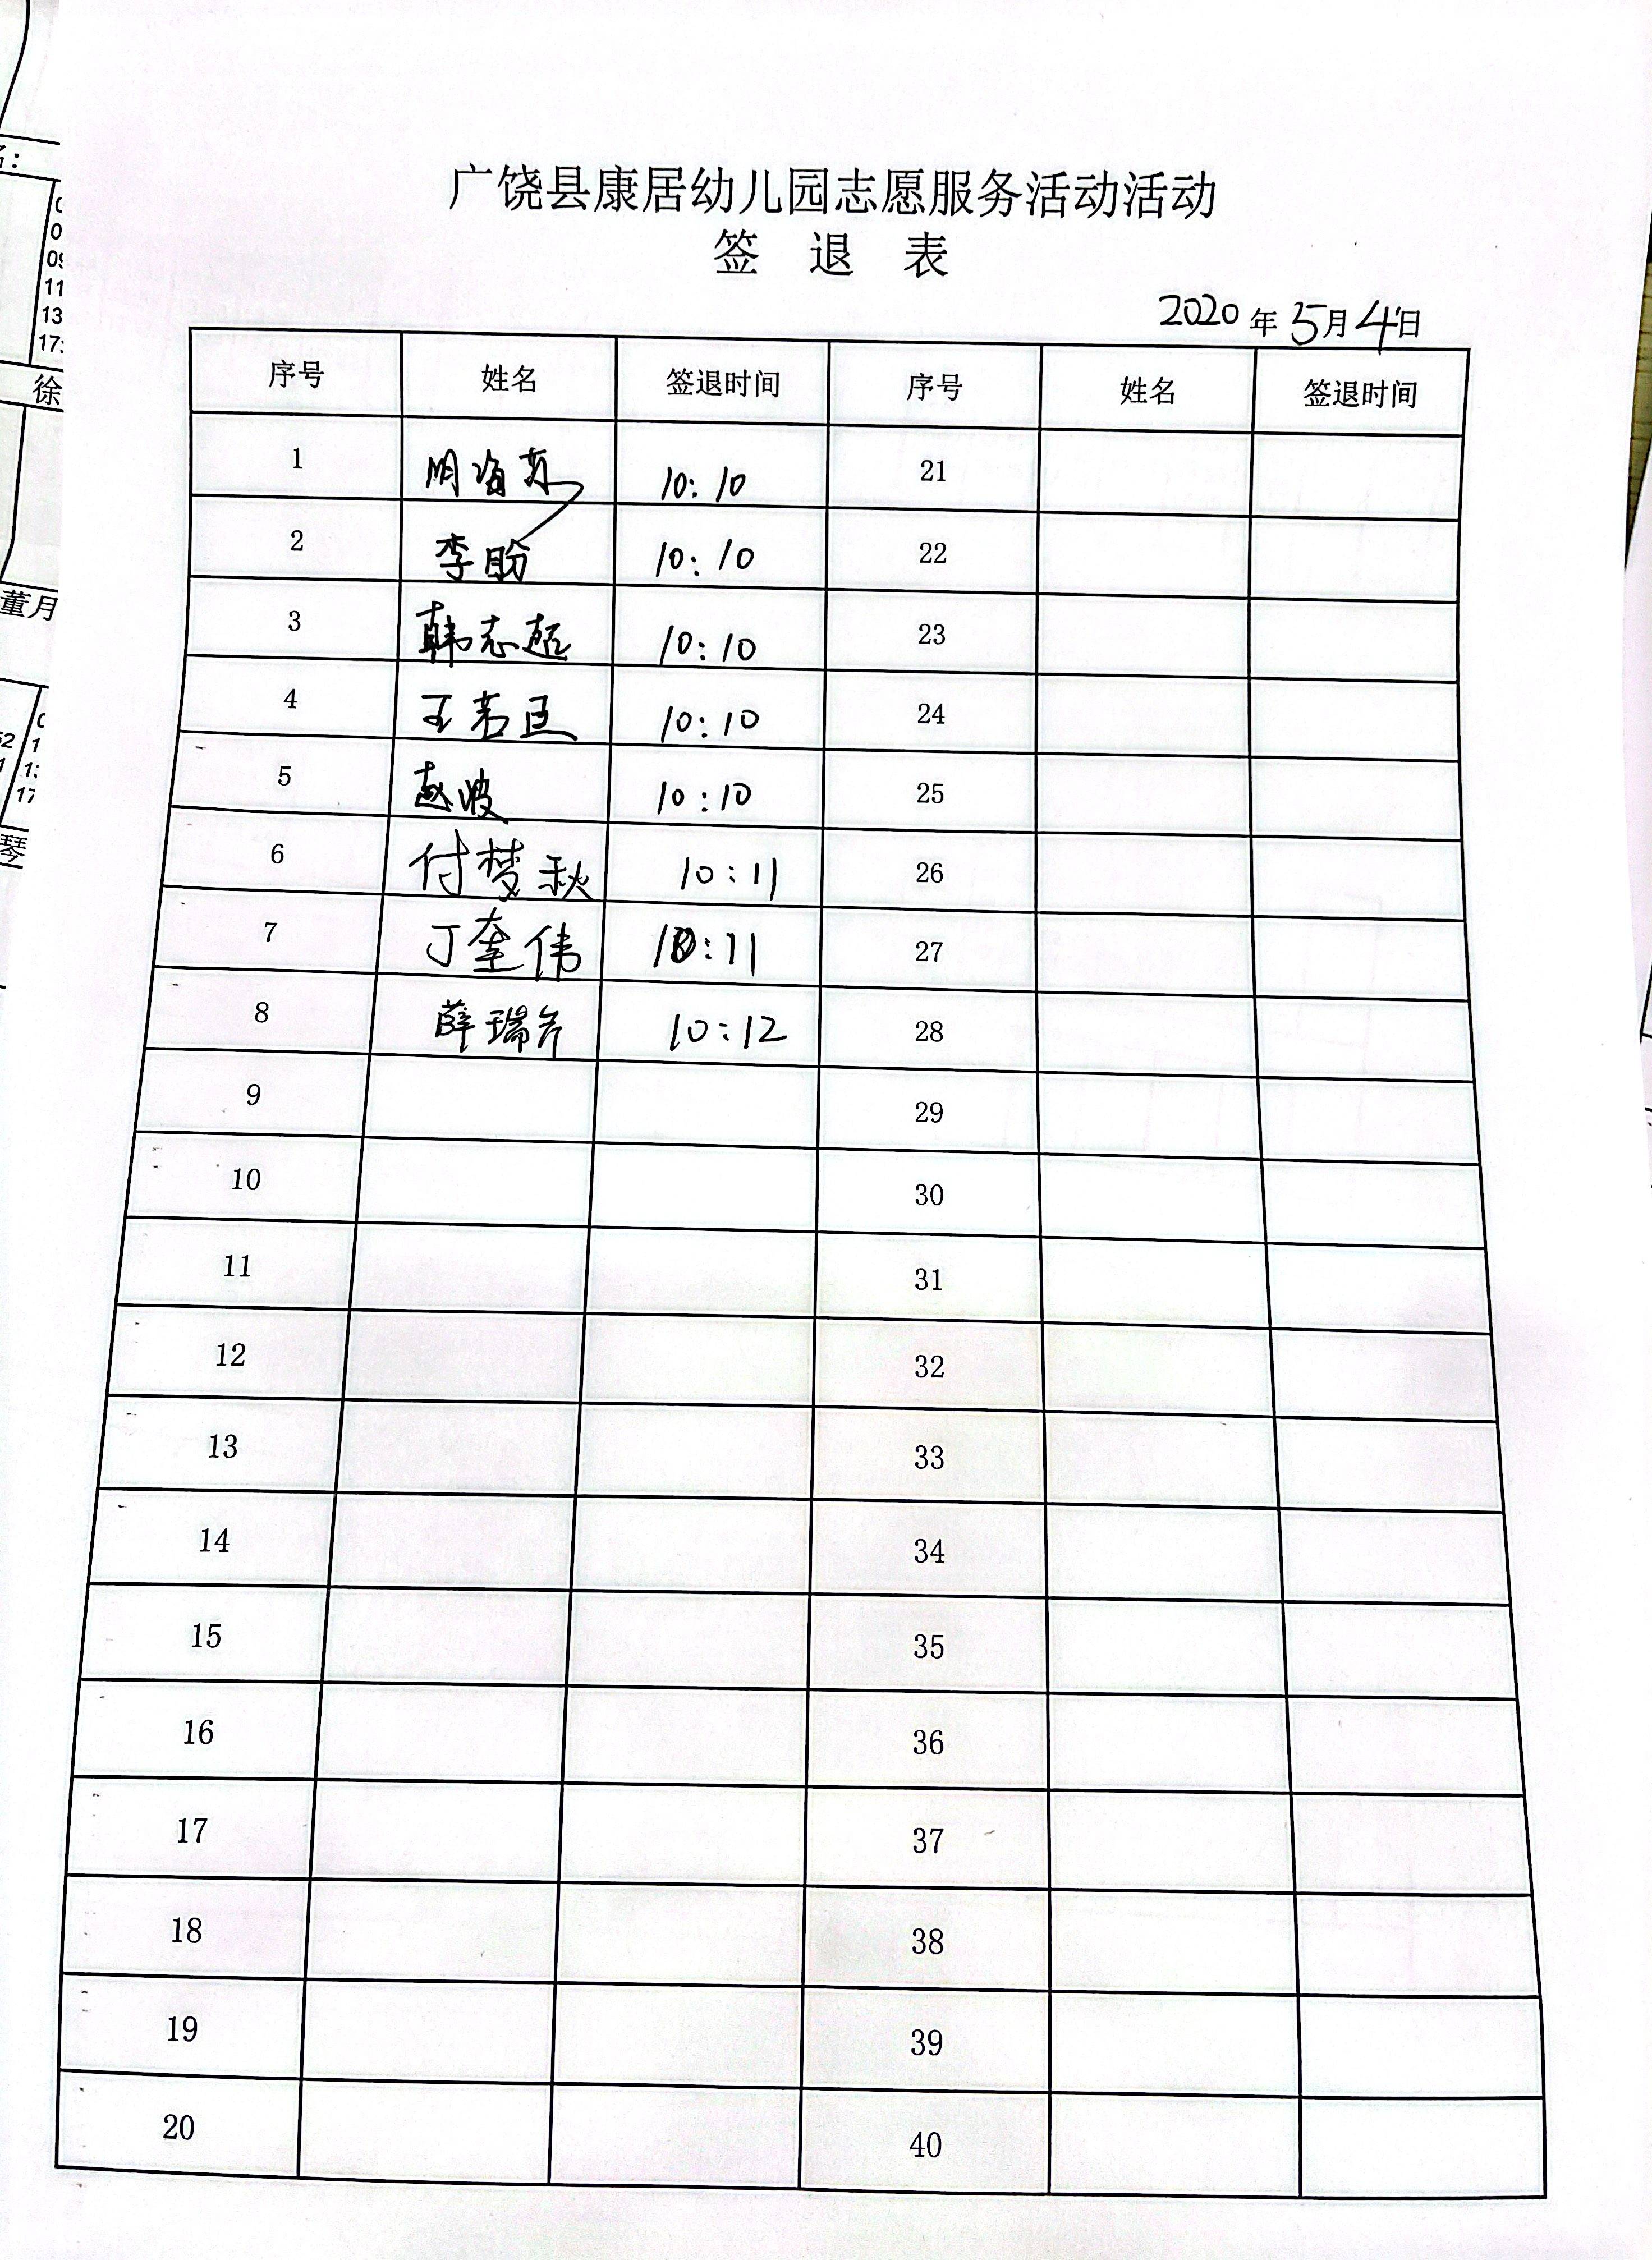 广饶县康居幼儿园志愿服务活动活动
签 退 表
2020年5月4日
序号 姓名 签退时间 序号 姓名 签退时间
1 10:10 21
2 李盼 10:10 22
3 韩志超 10:10 23
4 10:10 24
5 赵波 10:10 25
6 付梦秋 10:11 26
7 丁奎伟 10:11 27
8 薛瑞 10:12 28
9 29
10 30
11 31
12 32
13 33
14 34
15 35
16 36
17 37
18 38
19 39
20 40
徐
董月
琴